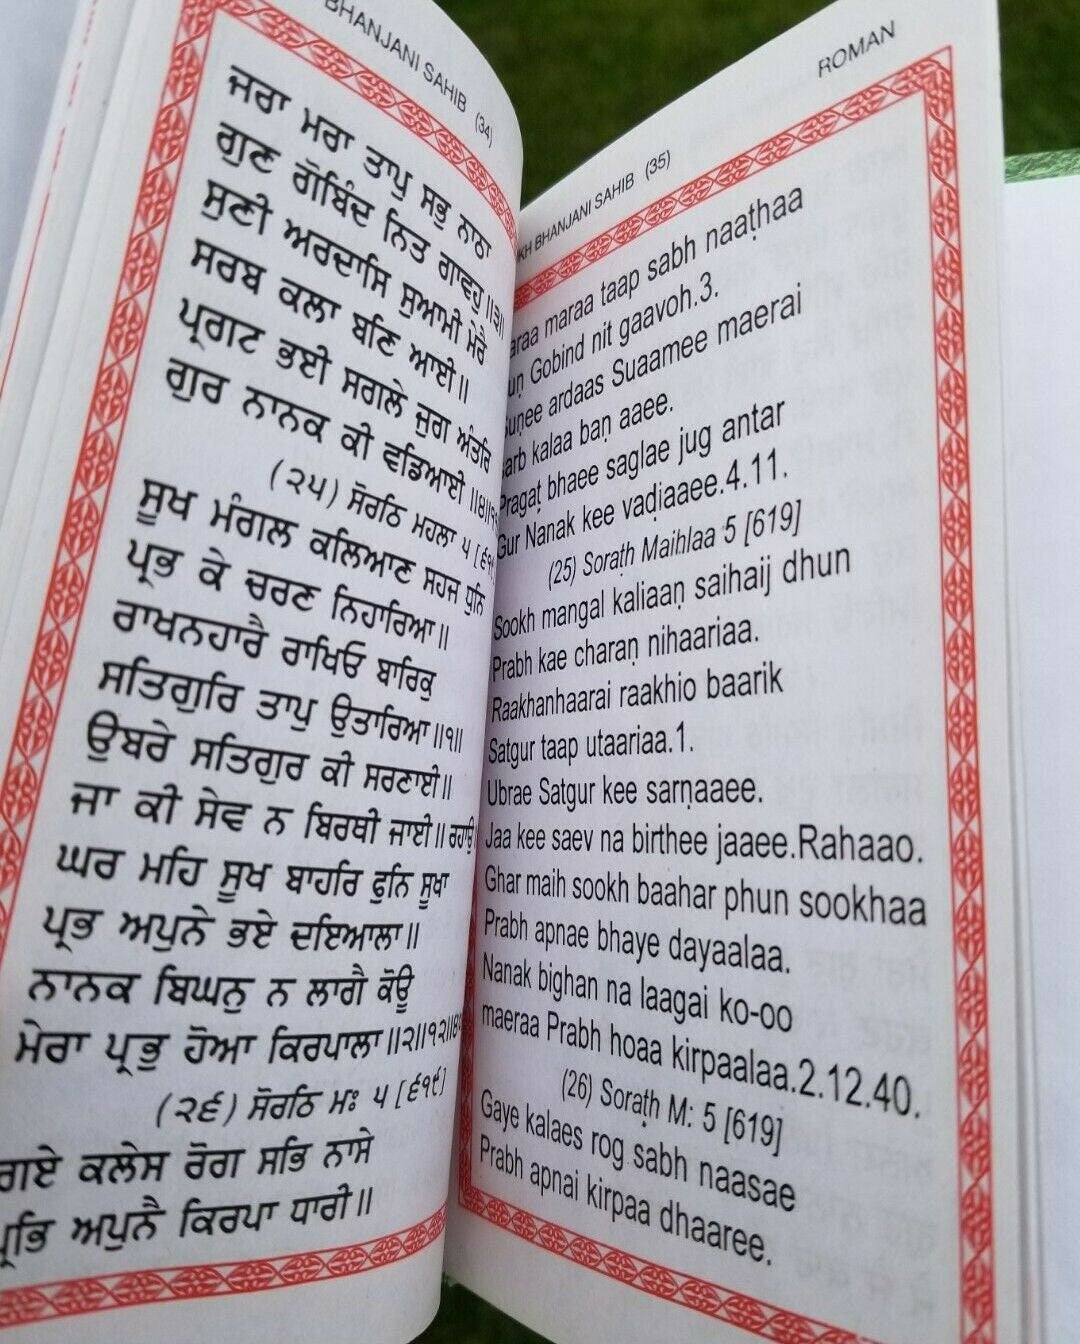 BHANJANI SAHIB (34)
ਜਰਾ ਮਰਾ ਤਾਪੁ ਸਭੁ ਨਾਠਾ
ਗੁਣ ਗੋਬਿੰਦ ਨਿਤ ਗਾਵਹੁ॥੩॥
ਸੁਣੀ ਅਰਦਾਸਿ ਸੁਆਮੀ ਮੇਰੈ
ਸਰਬ ਕਲਾ ਬਣਿ ਆਈ॥
ਪ੍ਰਗਟ ਭਈ ਸਗਲੇ ਜੁਗ ਅੰਤਰਿ
ਗੁਰ ਨਾਨਕ ਕੀ ਵਡਿਆਈ
(੨੫) ਸੋਰਠਿ ਮਹਲਾ ੫
ਸੂਖ ਮੰਗਲ ਕਲਿਆਣ ਸਹਜ ਧੁਨਿ
ਪ੍ਰਭ ਕੇ ਚਰਣ ਨਿਹਾਰਿਆ॥
ਰਾਖਨਹਾਰੈ ਰਾਖਿਓ ਬਾਰਿਕੁ
ਸਤਿਗੁਰਿ ਤਾਪੁ ਉਤਾਰਿਆ॥੧॥
ਉਬਰੇ ਸਤਿਗੁਰ ਕੀ ਸਰਣਾਈ॥
ਜਾ ਕੀ ਸੇਵ ਨ ਬਿਰਥੀ ਜਾਈ॥ ਰਹਾਉ
ਘਰ ਮਹਿ ਸੂਖ ਬਾਹਰਿ ਫੁਨਿ ਸੂਖਾ
ਪ੍ਰਭ ਅਪੁਨੇ ਭਏ ਦਇਆਲਾ॥
ਨਾਨਕ ਬਿਘਨੁ ਨ ਲਾਗੈ ਕੋਊ
ਮੇਰਾ ਪ੍ਰਭੁ ਹੋਆ ਕਿਰਪਾਲਾ॥੨॥੧੨॥੪
(੨੬) ਸੋਰਠਿ ਮਃ ੫ [੬੧੯]
ਗਏ ਕਲੇਸ ਰੋਗ ਸਭਿ ਨਾਸੇ
ਪ੍ਰਭਿ ਅਪੁਨੈ ਕਿਰਪਾ ਧਾਰੀ॥
KH BHANJANI SAHIB (35) ROMAN
araa maraa taap sabh naaṭhaa
uṇ Gobind nit gaavoh.3.
uṇee ardaas Suaamee maerai
arb kalaa baṇ aaee.
Pragaṭ bhaee saglae jug antar
Gur Nanak kee vaḍiaaee.4.11.
(25) Soraṭh Maihlaa 5 [619]
Sookh mangal kaliaaṇ saihaij dhun
Prabh kae charaṇ nihaariaa.
Raakhanhaarai raakhio baarik
Satgur taap utaariaa.1.
Ubrae Satgur kee sarṇaaee.
Jaa kee saev na birthee jaaee.Rahaao.
Ghar maih sookh baahar phun sookhaa
Prabh apnae bhaye dayaalaa.
Nanak bighan na laagai ko-oo
maeraa Prabh hoaa kirpaalaa.2.12.40.
(26) Soraṭh M: 5 [619]
Gaye kalaes rog sabh naasae
Prabh apnai kirpaa dhaaree.